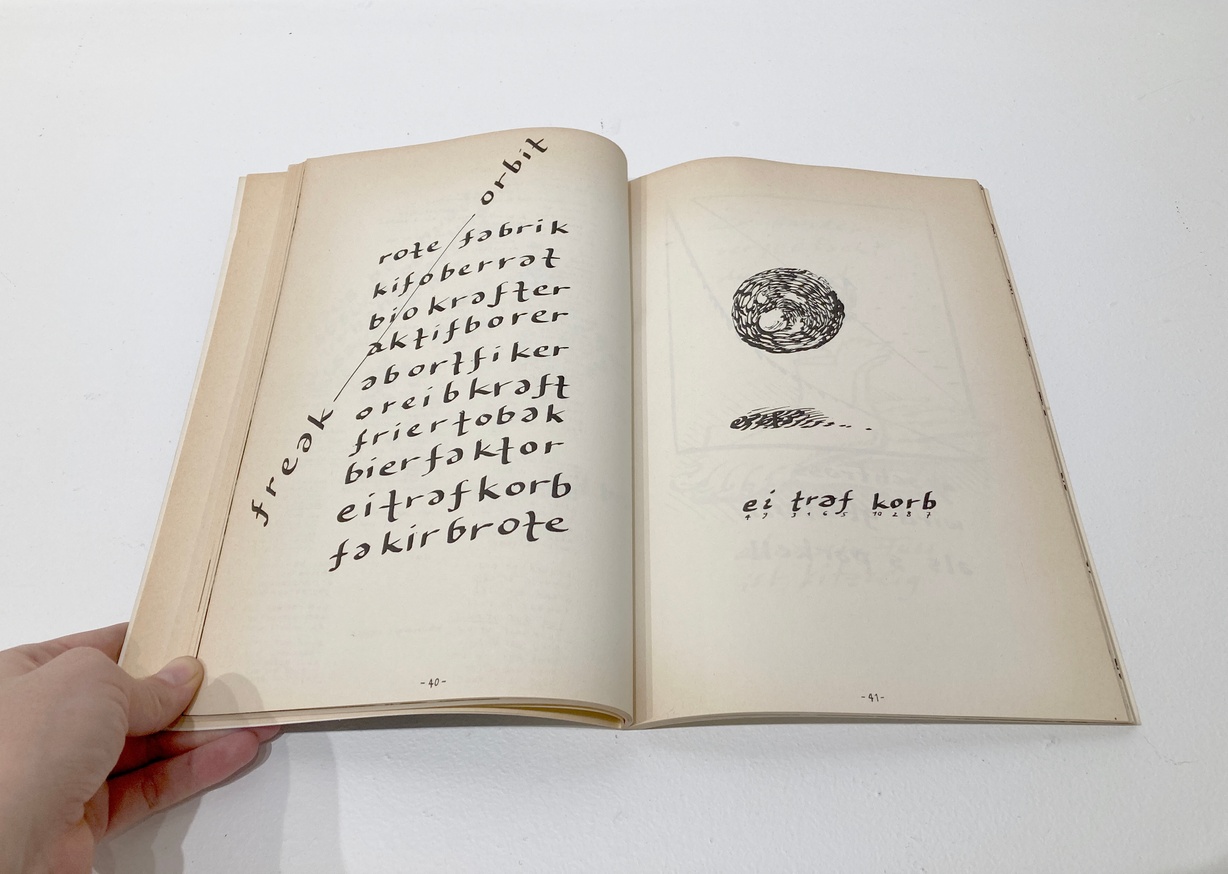 freak orbit
rote fabrik
kifoberrat
biokrafter
aktifborer
abortfiker
oreibkraft
friertobak
bierfaktor
eitrafkorb
fakirbrote
-40-
ei traf korb
-41-